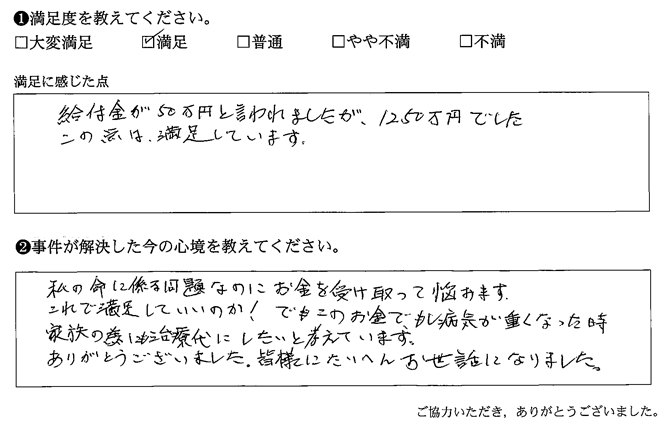 ❶満足度を教えてください。
□大変満足 ☑満足 □普通 □やや不満 □不満
満足に感じた点
給付金が50万円と言われましたが、1250万円でした
この点は、満足しています。
❷事件が解決した今の心境を教えてください。
私の命に係る問題なのにお金を受け取って悩みます。
これで満足していいのか！でもこのお金で、もし病気が重くなった時
家族の為に治療代にしたいと考えています。
ありがとうございました。皆様にたいへんお世話になりました。
ご協力いただき，ありがとうございました。